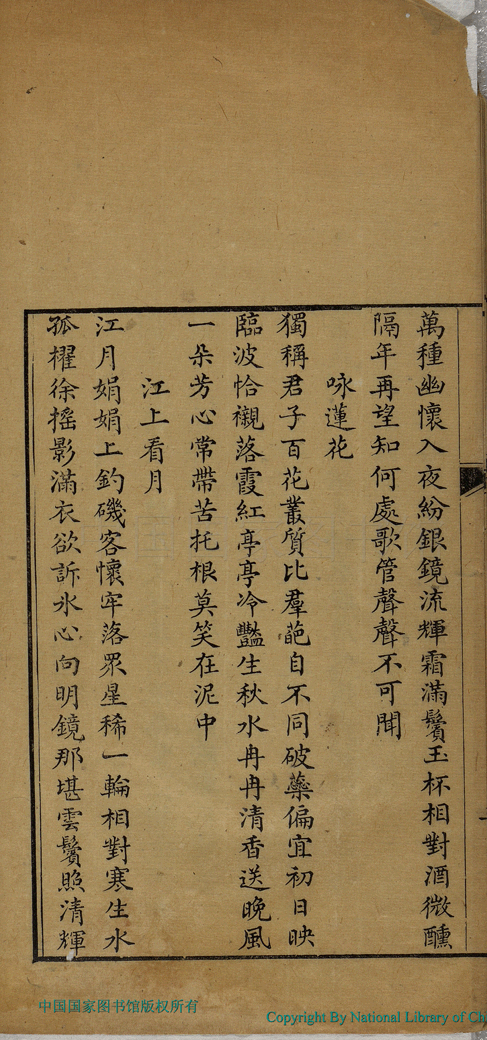 萬種幽懷入夜紛銀鏡流輝霜滿鬢玉杯相對酒微醺
隔年再望知何處歌管聲聲不可聞
咏蓮花
獨稱君子百花叢質比羣葩自不同破蘂偏宜初日映
臨波恰襯落霞紅亭亭冷豔生秋水冉冉清香送晚風
一朵芳心常帶苦托根莫笑在泥中
江上看月
江月娟娟上釣磯客懷牢落眾星稀一輪相對寒生水
孤櫂徐搖影滿衣欲訴氷心向明鏡那堪雲鬢照清輝
中国国家图书馆版权所有
Copyright By National Library of Ch